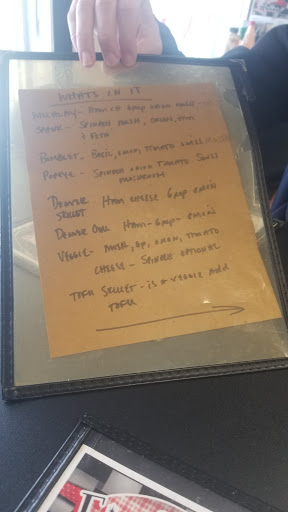 WHATS IN IT
HAM CH GPEP ONION MUSH
SPINACH MUSH, ONION, TOM
& FETA
BASIL, ONION, TOMATO SWISS
POPEYE - SPINACH ONION TOMATO SWISS
MUSHROOM
DENVER HAM CHEESE GPEP ONION
SKILLET
DENVER OML HAM - GPEP - ONION
VEGGIE - MUSH, GP, ONION, TOMATO
CHEESE - SPINACH OPTIONAL
TOFU SKILLET - IS A VEGGIE ADD
TOFU